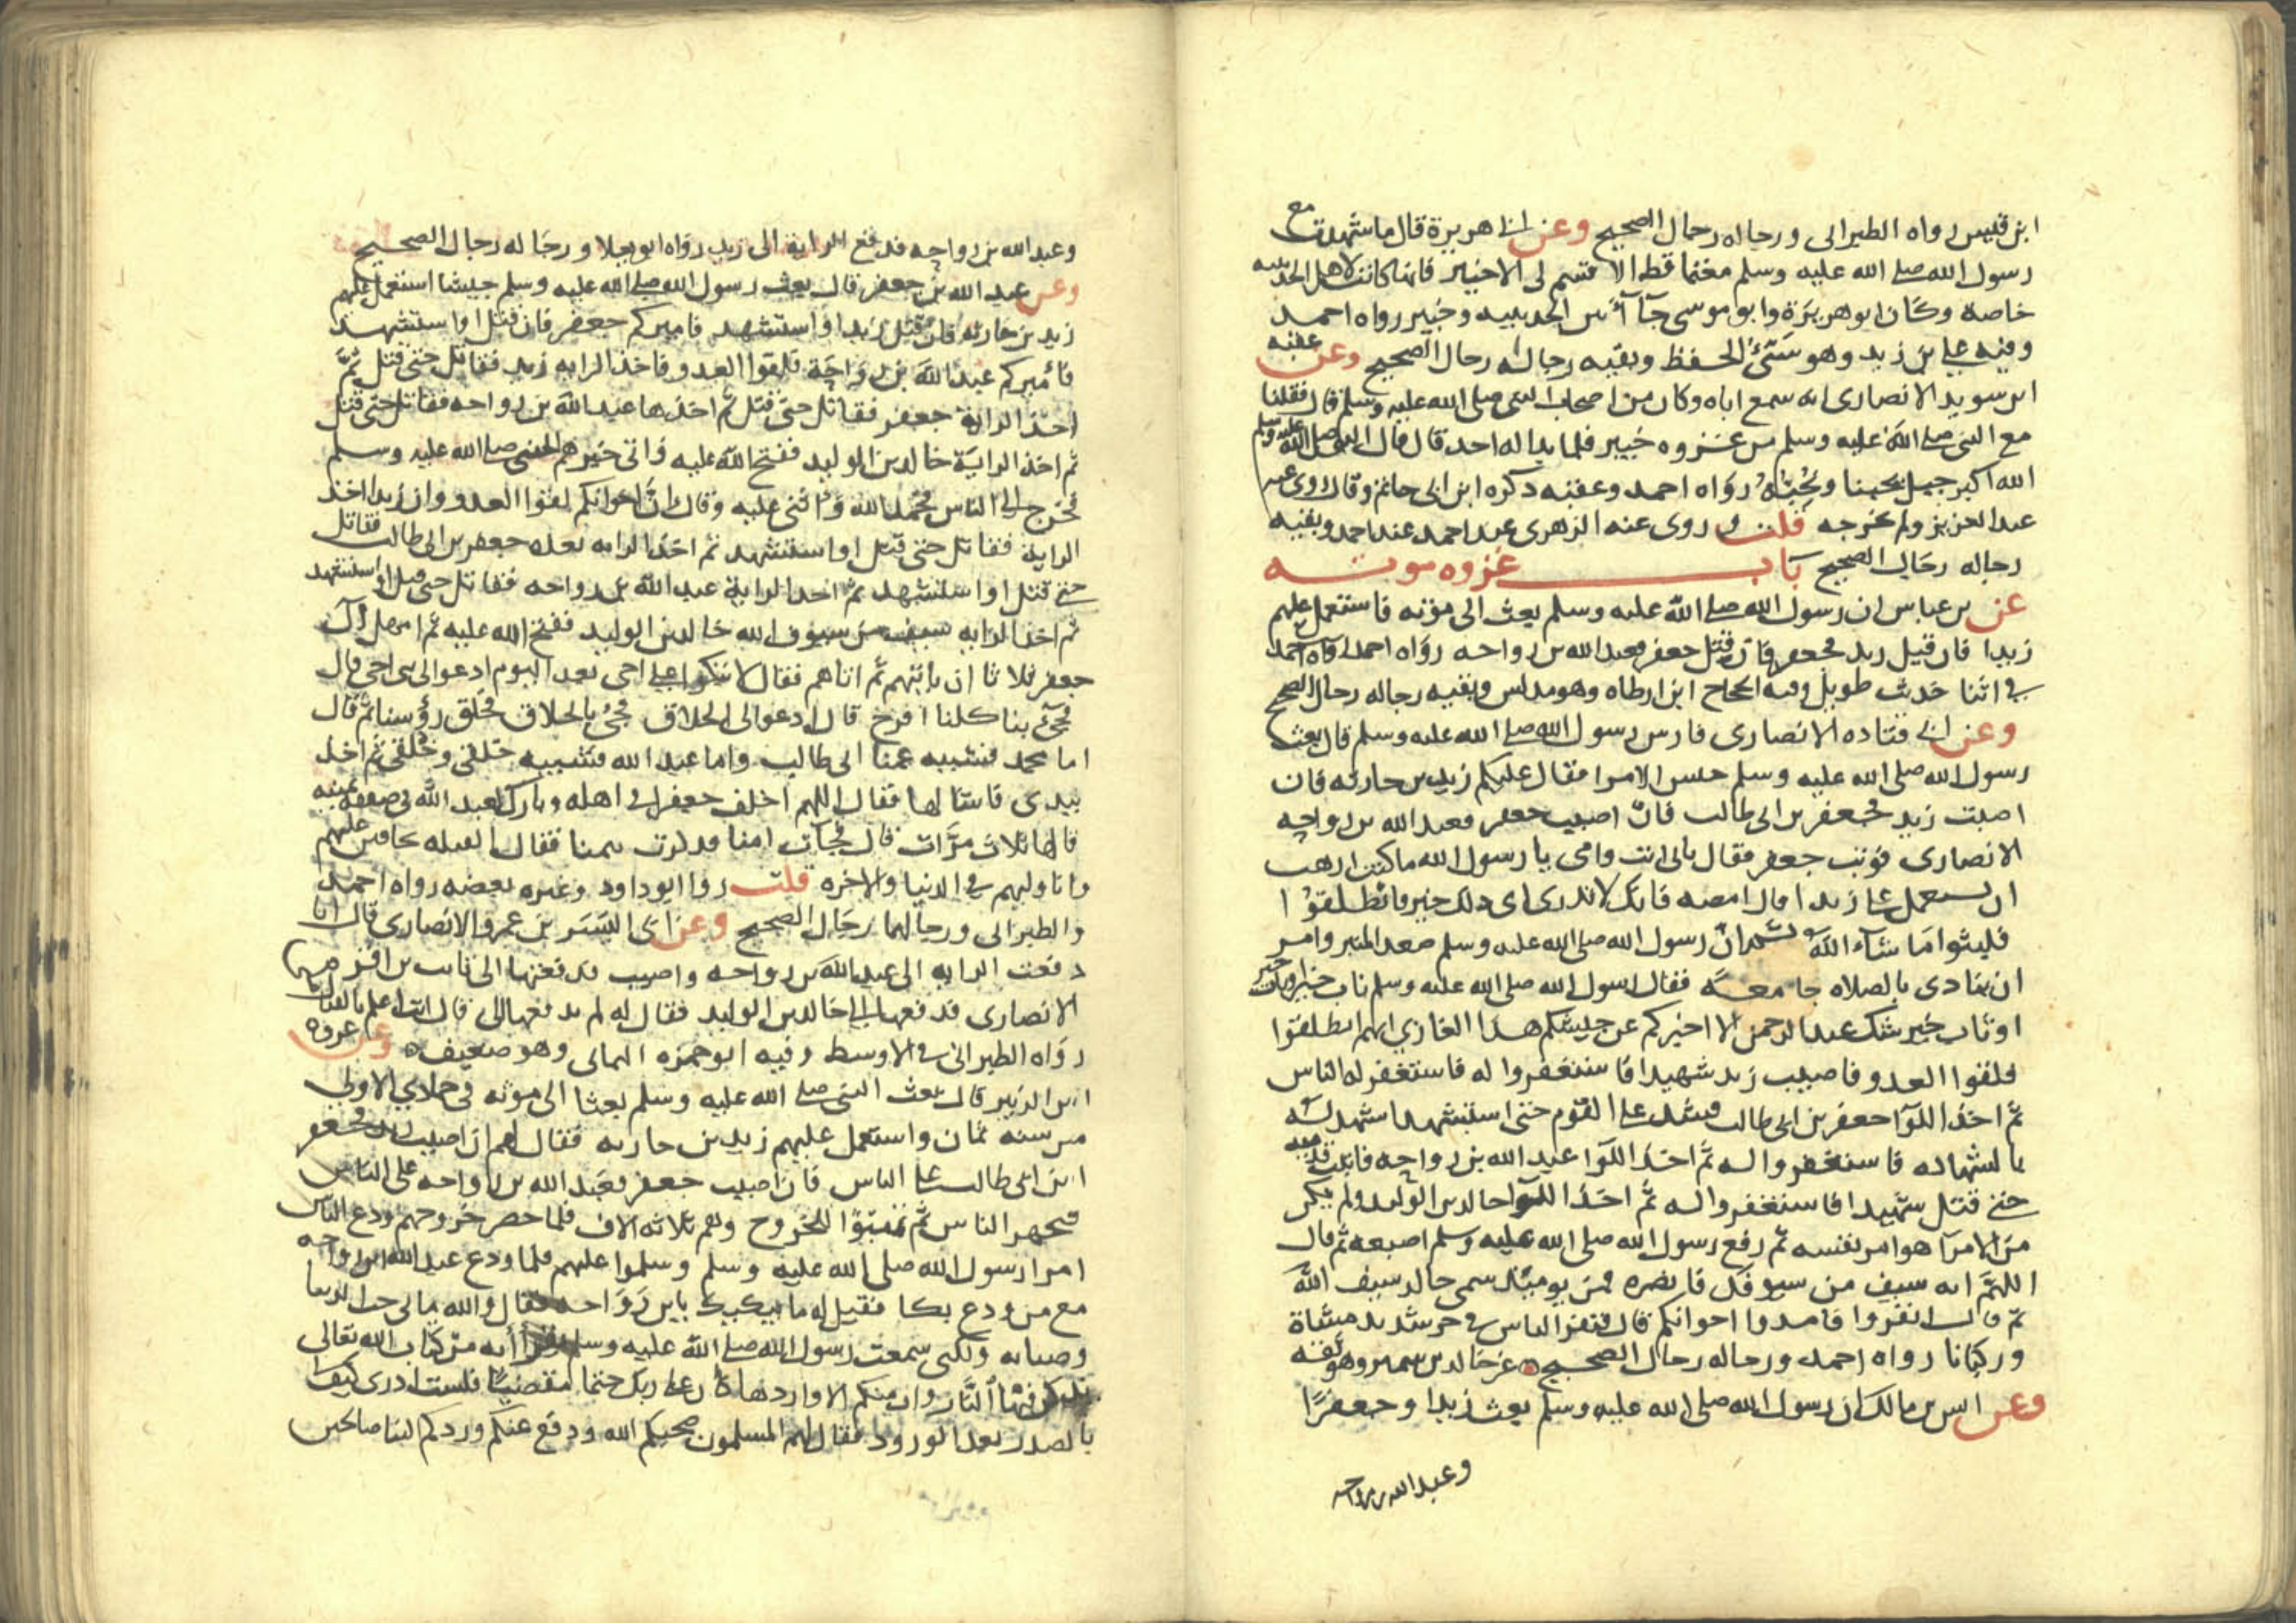 ابن قيس رواه الطبرانى ورجاله رجال الصحيح وعن ابى هريرة قال ما شهدت مع
رسول الله صلى الله عليه وسلم مغنما قط الا قسم لى الا خيبر فانها كانت لاهل الحديبيه
خاصة وكان ابو هريرة وابو موسى جاآ بين الحديبيه وخيبر رواه احمد
وفيه على بن زيد وهو سيئ الحفظ وبقيه رجاله رجال الصحيح وعن عقبه
ابن سويد الانصارى انه سمع اباه وكان من اصحاب النبى صلى الله عليه وسلم قال فقلنا
مع النبى صلى الله عليه وسلم من غزوه خيبر فلما بدا له احد قال قال النبى صلى الله عليه وسلم
الله اكبر جبل يحبنا ونحبه رواه احمد وعقبه ذكره ابن ابى حاتم وقال روى عنه
عبد العزيز ولم يخرجه قلت وروى عنه الزهرى عند احمد وبقيه
رجاله رجال الصحيح باب غزوه موته
عن بن عباس ان رسول الله صلى الله عليه وسلم بعث الى مؤته فاستعمل عليهم
زيدا فان قتل زيد فجعفر فان قتل جعفر فعبد الله بن رواحه رواه احمد
فى اثنا حديث طويل وفيه الحجاج ابن ارطاه وهو مدلس وبقيه رجاله رجال الصحيح
وعن ابى قتاده الانصارى فارس رسول الله صلى الله عليه وسلم قال بعث
رسول الله صلى الله عليه وسلم جيش الامرا فقال عليكم زيد بن حارثه فان
اصيب زيد فجعفر بن ابى طالب فان اصيب جعفر فعبد الله بن رواحه
الانصارى فوثب جعفر فقال بابى انت وامى يا رسول الله ما كنت ارهب
ان يستعمل على زيدا قال امضه فانك لا تدرى اى ذلك خير فانطلقوا
فلبثوا ما شآء الله ثم ان رسول الله صلى الله عليه وسلم صعد المنبر وامر
ان ينادى بالصلاه جامعه فقال رسول الله صلى الله عليه وسلم ناب خبر
او ثاب خبر شك عبد الرحمن الا اخبركم عن جيشكم هذا الغازي انهم انطلقوا
فلقوا العدو فاصيب زيد شهيدا فاستغفروا له فاستغفر له الناس
ثم اخذ اللوآ جعفر بن ابى طالب فشد على القوم حتى استشهد اشهد له
بالشهاده فاستغفروا له ثم اخذ اللوآ عبد الله بن رواحه فاثبت قدميه
حتى قتل شهيدا فاستغفروا له ثم اخذ اللوآ خالد بن الوليد ولم يكن
من الامرآ هو امر نفسه ثم رفع رسول الله صلى الله عليه وسلم اصبعه ثم قال
اللهم انه سيف من سيوفك فانصره فمن يومئذ سمى خالد سيف الله
ثم قال انفروا فامدوا اخوانكم قال فنفر الناس فى حر شديد مشاة
وركبانا رواه احمد ورجاله رجال الصحيح غير خالد بن سمير وهو ثقه
وعن انس بن مالك ان رسول الله صلى الله عليه وسلم بعث زيدا وجعفرًا
وعبد الله بن رواحه
وعبد الله بن رواحه فدفع الراية الى زيد رواه ابو يعلا ورجاله رجال الصحيح
وعن عبد الله بن جعفر قال بعث رسول الله صلى الله عليه وسلم جيشا استعمل عليهم
زيد بن حارثه فان قتل زيد او استشهد فاميركم جعفر فان قتل او استشهد
فأميركم عبد الله بن رواحة فلقوا العدو فاخذ الرايه زيد فقاتل حتى قتل ثم
اخذ الراية جعفر فقاتل حتى قتل ثم اخذها عبد الله بن رواحه فقاتل حتى قتل
ثم اخذ الراية خالد بن الوليد ففتح الله عليه واتى خبرهم النبى صلى الله عليه وسلم
فخرج الى الناس فحمد الله واثنى عليه وقال ان اخوانكم لقوا العدو وان زيدا اخذ
الراية فقاتل حتى قتل او استشهد ثم اخذ الرايه بعده جعفر بن ابى طالب فقاتل
حتى قتل او استشهد ثم اخذ الراية عبد الله بن رواحه فقاتل حتى قتل او استشهد
ثم اخذ الرايه سيف من سيوف الله خالد بن الوليد ففتح الله عليه ثم امهل آل
جعفر ثلاثا ان ياتيهم ثم اتاهم فقال لا تبكوا على اخى بعد اليوم ادعوا لى بنى اخى قال
فجئ بنا كلنا افرخ قال ادعوا لى الحلاق فجئ بالحلاق فحلق رؤسنا ثم قال
اما محمد فشبيه عمنا ابى طالب واما عبد الله فشبيه خلقى وخلقى ثم اخذ
بيدى فاشالها فقال اللهم اخلف جعفرا فى اهله وبارك لعبد الله فى صفقة يمينه
قالها ثلاث مرات قال فجآت امنا فذكرت يتمنا فقال العيله تخافين عليهم
وانا وليهم فى الدنيا والاخره قلت روا ابو داود وغيره بعضه رواه احمد
والطبرانى ورجالهما رجال الصحيح وعن ابى اليسر بن عمرو الانصارى قال انا
دفعت الرايه الى عبد الله بن رواحه واصيب فدفعتها الى ثابت بن اقرم
الانصارى فدفعها الى خالد بن الوليد فقال له لم تدفعها الى قال انت اعلم بالقتال
رواه الطبرانى فى الاوسط وفيه ابو حمزه اليمانى وهو ضعيف وعن عروه
ابن الزبير قال بعث النبى صلى الله عليه وسلم بعثا الى موته فى جمادي الاولى
من سنه ثمان واستعمل عليهم زيد بن حارثه فقال لهم ان اصيب زيد فجعفر
ابن ابى طالب على الناس فان اصيب جعفر فعبد الله بن رواحه على الناس
فتجهز الناس ثم تهيؤا للخروج وهم ثلاثه الاف فلما حضر خروجهم ودع الناس
امرا رسول الله صلى الله عليه وسلم وسلموا عليهم فلما ودع عبد الله ابن رواحه
مع من ودع بكا فقيل له ما يبكيك يابن رواحه فقال والله ما بى حب الدنيا
وصبابه ولكنى سمعت رسول الله صلى الله عليه وسلم يقرأ أيه من كتاب الله تعالى
يذكر فيها النار وان منكم الا واردها كان على ربك حتما مقضيا فلست ادرى كيف
بالصدر بعد الورود فقال لهم المسلمون صحبكم الله ودفع عنكم وردكم الينا صالحين